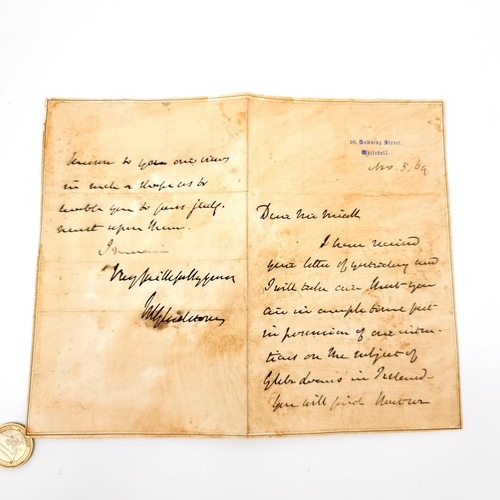 10, Downing Street,
Whitehall.
Nov. 5. 69
Dear Mr Miall
I have received
your letter of yesterday and
I will take care that you
are in ample time put
in possession of our inten-
tions on the subject of
Glebe loans in Ireland.
You will find that we
to you our views
in such a shape as to
enable you to pass judg-
ment upon them.
I remain
Very faithfully yours
WEGladstone